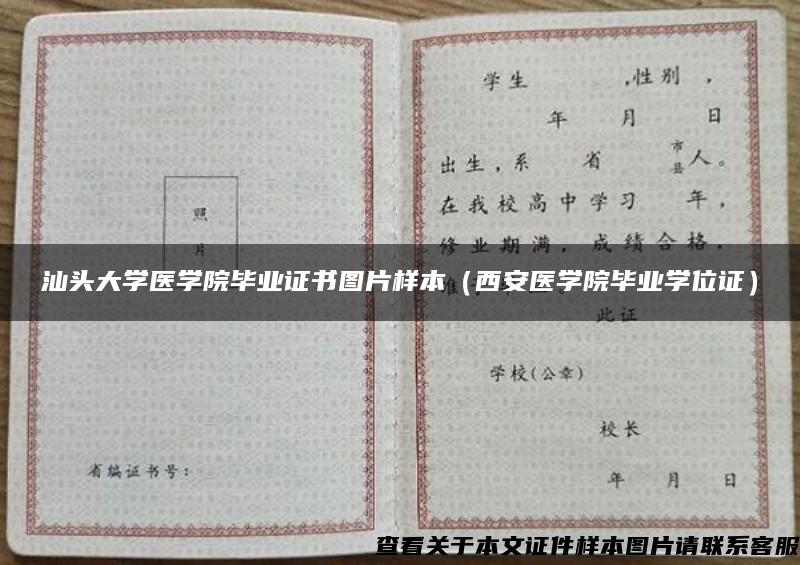 照
片
省编证书号：
学生 ,性别 ，
年 月 日
出生，系 省 市县人。
在我校高中学习 年，
修业期满，成绩合格，
汕头大学医学院毕业证书图片样本（西安医学院毕业学位证）
此证
学校(公章)
校长
年 月 日
查看关于本文证件样本图片请联系客服